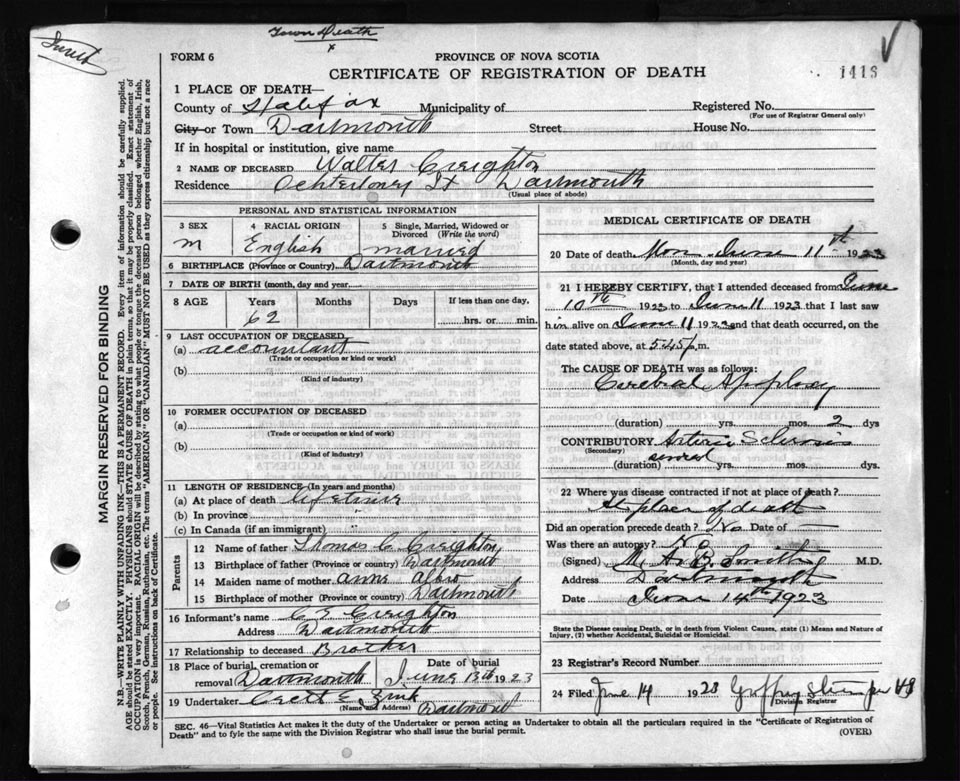 Town Death
x
FORM 6
PROVINCE OF NOVA SCOTIA
CERTIFICATE OF REGISTRATION OF DEATH
1416
1 PLACE OF DEATH—
County of Halifax Municipality of
Registered No.
(For use of Registrar General only)
City or Town Dartmouth Street House No.
If in hospital or institution, give name
2 NAME OF DECEASED Walter Creighton
Residence Ochterloney St Dartmouth
(Usual place of abode)
PERSONAL AND STATISTICAL INFORMATION
3 SEX
m
4 RACIAL ORIGIN
English
5 Single, Married, Widowed or Divorced (Write the word)
married
6 BIRTHPLACE (Province or Country) Dartmouth
7 DATE OF BIRTH (month, day and year)
8 AGE Years Months Days If less than one day,
62 hrs. or min.
9 LAST OCCUPATION OF DECEASED
(a) accountant
(Trade or occupation or kind or work)
(b)
(Kind of industry)
10 FORMER OCCUPATION OF DECEASED
(a)
(Trade or occupation or kind of work)
(b)
(Kind of industry)
11 LENGTH OF RESIDENCE (In years and months)
(a) At place of death lifetime
(b) In province "
(c) In Canada (if an immigrant) "
Parents
12 Name of father Thomas C Creighton
13 Birthplace of father (Province or Country) Dartmouth
14 Maiden name of mother anne albro
15 Birthplace of mother (Province or Country) Dartmouth
16 Informant's name Creighton
Address Dartmouth
17 Relationship to deceased Brother
18 Place of burial, cremation or removal Dartmouth
Date of burial
June 13th 1923
19 Undertaker Zink
(Name and Address) Dartmouth
MEDICAL CERTIFICATE OF DEATH
20 Date of death Mon June 11th 1923
(Month, day and year)
21 I HEREBY CERTIFY, that I attended deceased from June
10th 1923 to June 11 1923 that I last saw
him alive on June 11 1923 and that death occurred, on the
date stated above, at 5.45 p.m.
The CAUSE OF DEATH was as follows:
Cerebral Apoplexy
(duration) yrs. mos. 2 dys
CONTRIBUTORY Arterio Sclerosis
(Secondary) several
(duration) yrs. mos. dys.
22 Where was disease contracted if not at place of death?
At place of death
Did an operation precede death? No Date of —
Was there an autopsy? No
(Signed) M. A. B. Smith M.D.
Address Dartmouth
Date June 14th 1923
State the Disease causing Death, or in death from Violent Causes, state (1) Means and Nature of
Injury, (2) whether Accidental, Suicidal or Homicidal.
23 Registrar's Record Number
24 Filed June 14 1923
Division Registrar
SEC. 46—Vital Statistics Act makes it the duty of the Undertaker or person acting as Undertaker to obtain all the particulars required in the "Certificate of Registration of
Death" and to fyle the same with the Division Registrar who shall issue the burial permit.
(OVER)
MARGIN RESERVED FOR BINDING
N.B.—WRITE PLAINLY WITH UNFADING INK—THIS IS A PERMANENT RECORD. Every item of information should be carefully supplied.
AGE should be stated EXACTLY. PHYSICIANS should STATE CAUSE OF DEATH in plain terms, so that it may be properly classified. Exact statement of
OCCUPATION is very important. RACIAL ORIGIN will be described by stating to what people or tongue the deceased person belonged whether English, Irish,
Scotch, French, German, Russian, Ruthenian, etc. The terms "AMERICAN" OR "CANADIAN" MUST NOT BE USED as they express citizenship but not a race
or people. See instructions on back of Certificate.